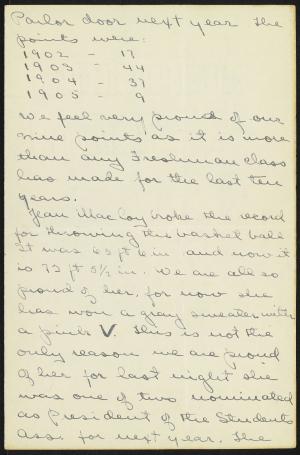 Parlor door next year. The
points were:
1902 - 17
1903 - 44
1904 - 37
1905 - 9
We feel very proud of our
nine points as it is more
than any Freshman class
has made for the last ten
years.
Jean Macloy broke the record
for throwing the basket ball
It was 65 ft 6 in and now it
is 73 ft 5 1/2 in. We are all so
proud of her, for now she
has won a gray sweater with
a pink V. This is not the
only reason we are proud
of her for last night she
was one of two nominated
as President of the Students
Ass. for next year. The